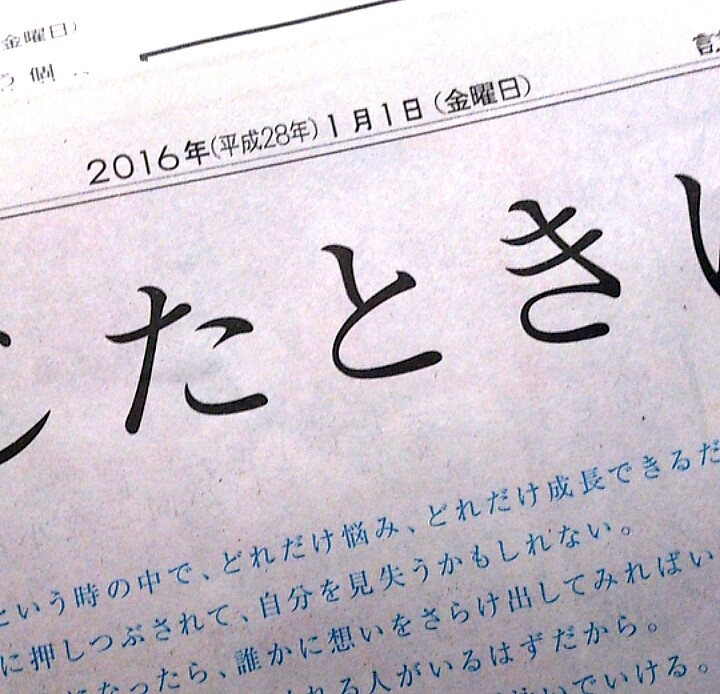 金曜日）
個
2016年(平成28年)1月1日（金曜日）
たとき
という時の中で、どれだけ悩み、どれだけ成長できるだ
に押しつぶされて、自分を見失うかもしれない。
なったら、誰かに想いをさらけ出してみればい
れる人がいるはずだから。
でいける。